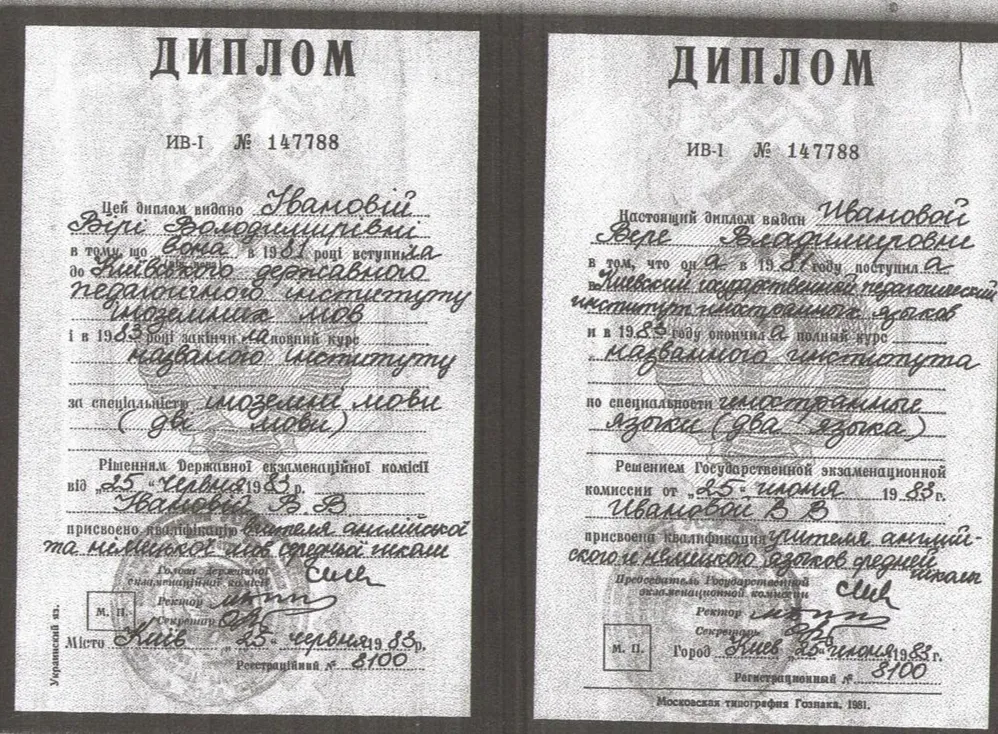 ДИПЛОМ
ИВ-I № 147788
Цей диплом видано Івановій
Вірі Володимирівні
в тому, що вона в 1981 році вступила
до Київського державного
педагогічного інституту
іноземних мов
і в 1983 році закінчила повний курс
названого інституту
за спеціальністю іноземні мови
(дві мови)
Рішенням Державної екзаменаційної комісії
від „25“ червня 1983 р.
Івановій В В
присвоєно кваліфікацію вчителя англійської
та німецької мов середньої школи
Голова Державної
екзаменаційної комісії
Ректор
Секретар
М. П.
Місто Київ „25“ червня 1983 р.
Реєстраційний № 8100
Украинский яз.
ДИПЛОМ
ИВ-I № 147788
Настоящий диплом выдан Ивановой
Вере Владимировне
в том, что она в 1981 году поступила
в Киевский государственный педагогический
институт иностранных языков
и в 1983 году окончила полный курс
названного института
по специальности иностранные
языки (два языка)
Решением Государственной экзаменационной
комиссии от „25“ июня 1983 г.
Ивановой В В
присвоена квалификация учителя англий-
ского и немецкого языков средней
школы
Председатель Государственной
экзаменационной комиссии
Ректор
Секретарь
М. П.
Город Киев „25“ июня 1983 г.
Регистрационный № 8100
Московская типография Гознака. 1981.